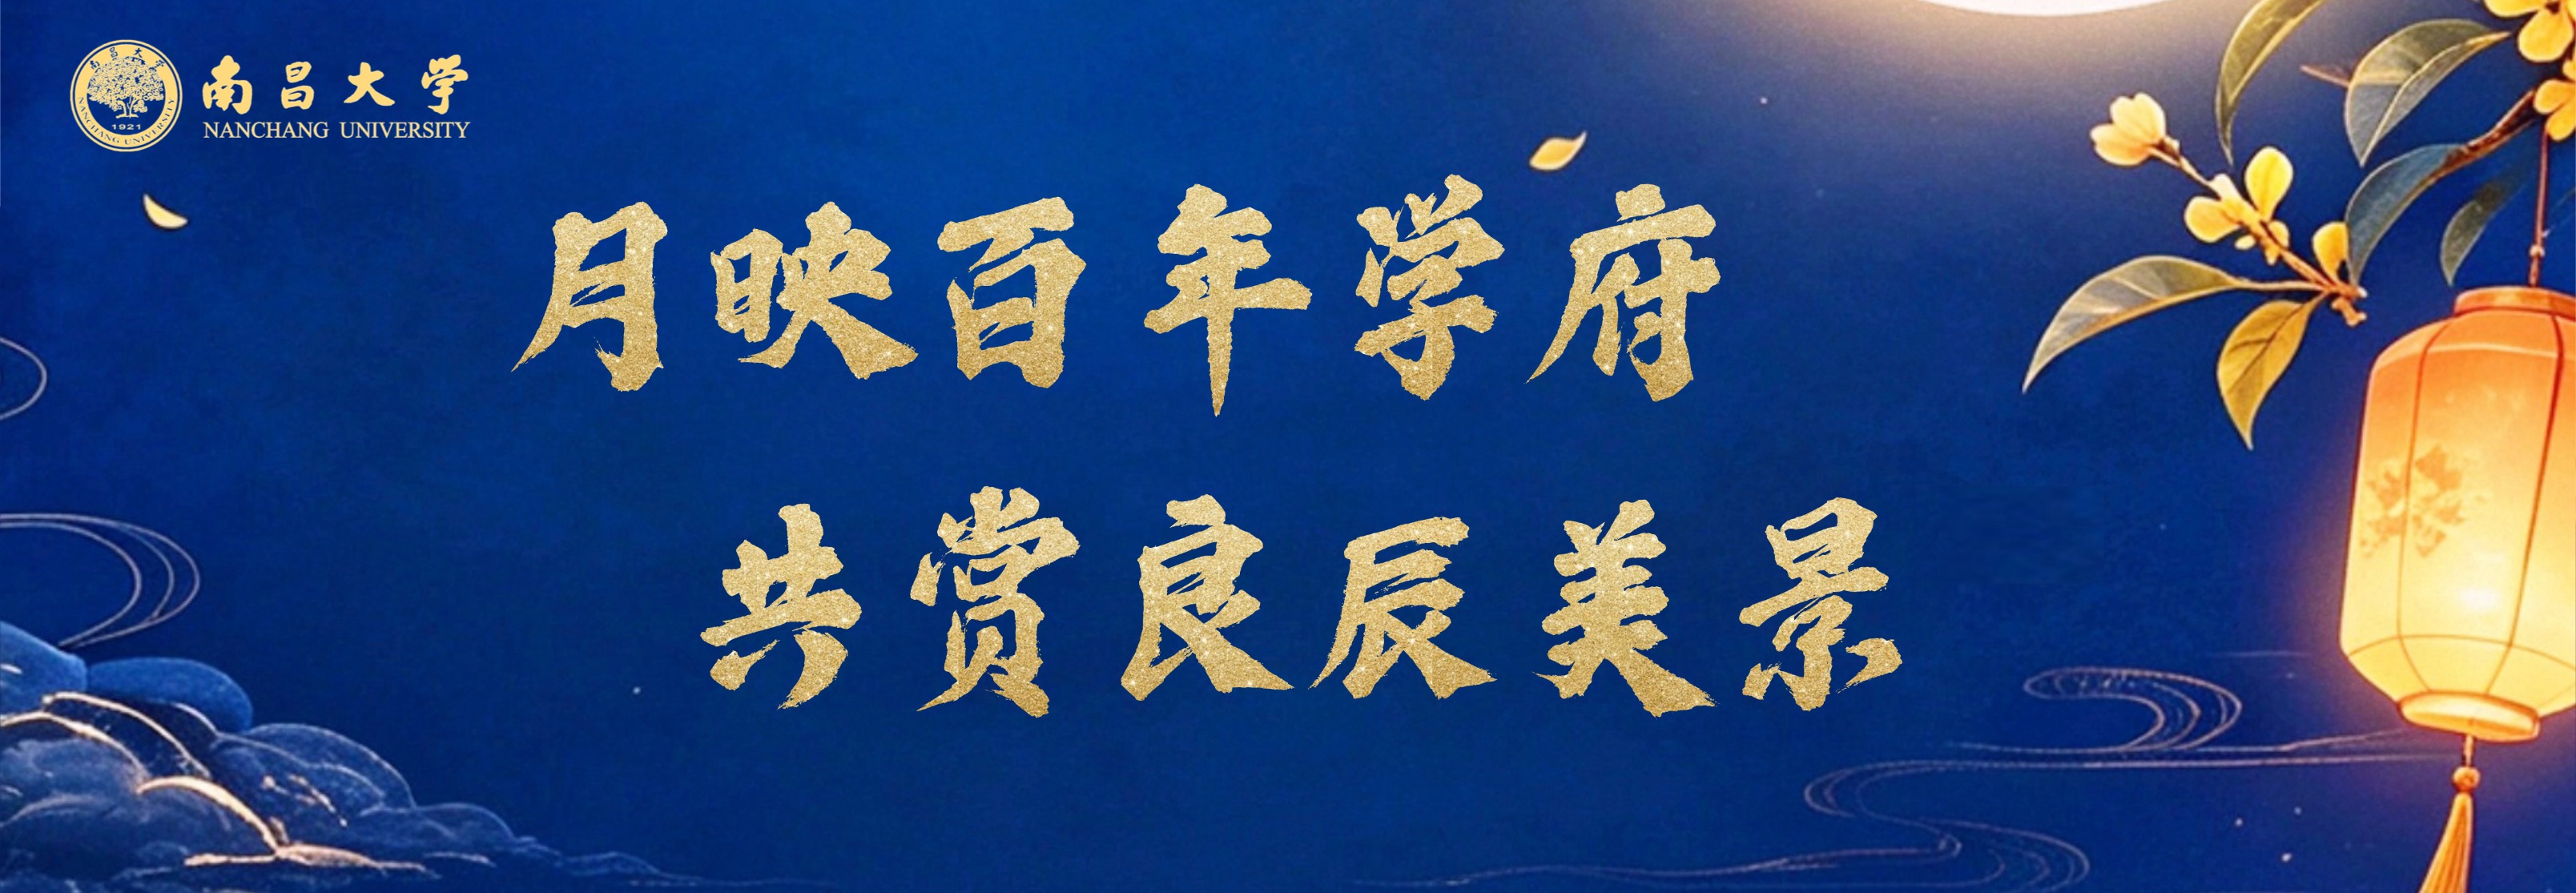 南昌大学
NANCHANG UNIVERSITY
南昌大学
NANCHANG UNIVERSITY
1921
月映百年学府
共赏良辰美景